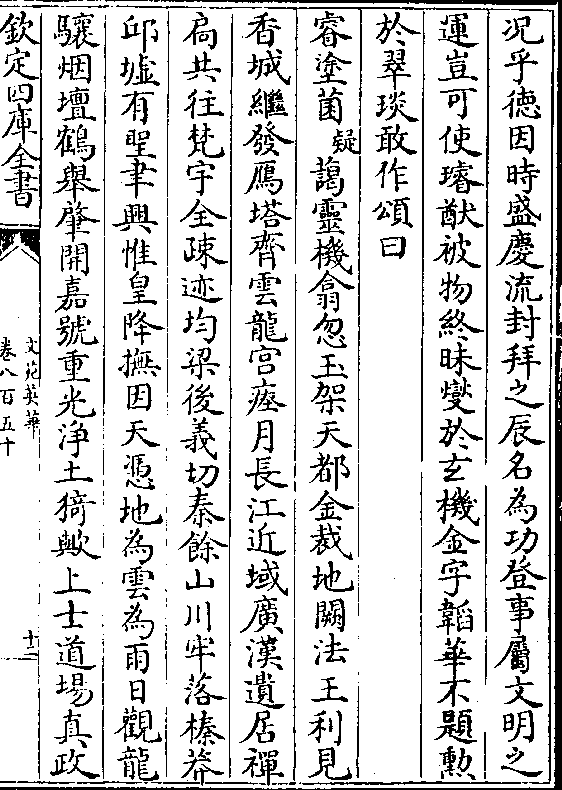 况乎德因時盛慶流封拜之辰名為功登事屬文明之
運豈可使璿猷被物終昧燮於玄機金字韜華不題勲
於翠琰敢作頌曰
睿塗菌疑藹靈機翕忽玉架天都金裁地闕法王利見
香城繼發鴈塔齊雲龍宫瘞月長江近域廣漢遺居禪
扃共往梵宇全疎迹均梁後義切秦餘山川牢落榛莽
邱墟有聖聿興惟皇降撫因天憑地為雲為雨日觀龍
驤烟壇鶴舉肇開嘉號重光淨土猗歟上士道場真政
欽定四庫全書
文苑英華
卷八百五十
十二